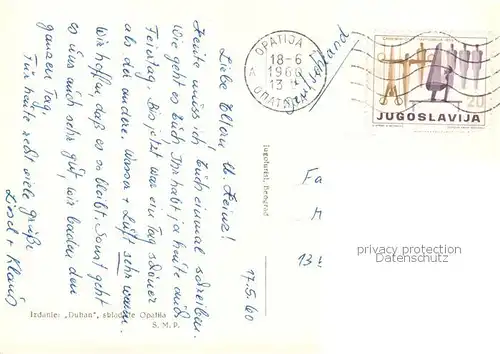 Liebe Eltern u. Heinz!
Heute muss ich Euch einmal schreiben.
Wie geht es Euch Ihr habt ja heute auch
Feiertag. Bis jetzt war ein Tag schöner
als der andere. Wasser + Luft sehr warm.
Wir hoffen daß es so bleibt. Sonst geht
es uns auch sehr gut, wir baden den
ganzen Tag.
Für heute seit viele grüße
Liesel + Klaus
17.5.60
OPATIJA
18-6
1960
13
A OPATIJA
JUGOSLAVIJA
20
Jugoturist, Beograd
Fa
13
privacy protection
Datenschutz
Izdanje: „Duhan", skladište Opatija
S. M. P.